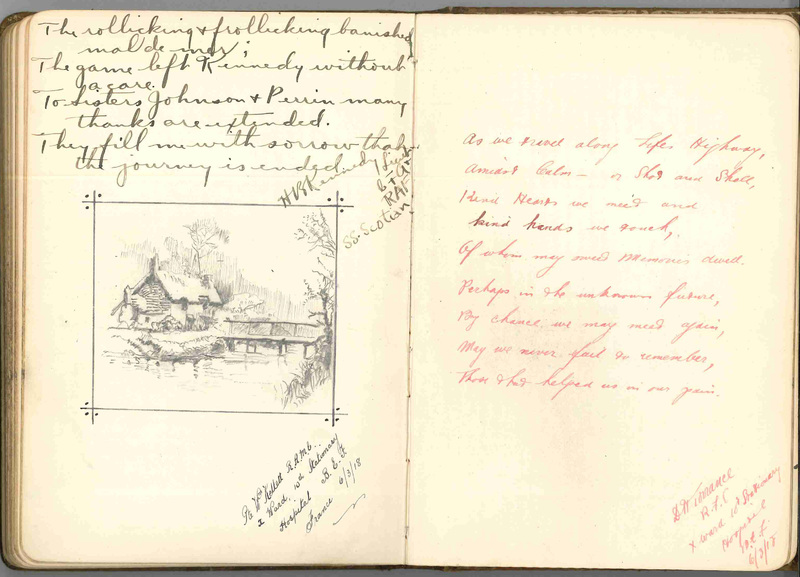 The rollicking & frollicking banished
mal de mer;
The game left Kennedy without
a care.
To Sisters Johnson & Perrin many
thanks are extended.
They fill me with sorrow that
the journey is ended
HB Kennedy Lieut
RAF
SS. Scotian
Pte Wm Kellett R.A.M.C.
X Ward, 10th Stationary
Hospital B.E.F
France 6/3/18
As we travel along Life's Highway,
Amidst Calm – or Shot and Shell,
Kind Hearts we meet and
kind hands we touch,
Of whom may sweet Memories dwell.
Perhaps in the unknown future,
By chance we may meet again,
May we never fail to remember,
Those that helped us in our pain.
R.F.C
X Ward 10th Stationary
Hospital
B.E.F.
6/3/18